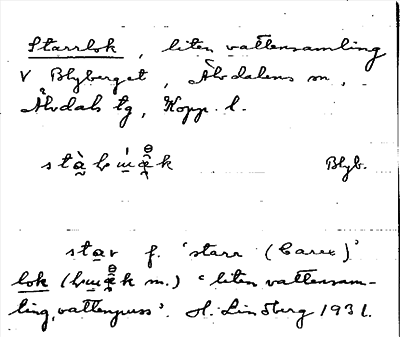 Starrlok, liten vattensamling
V Blyberget, Älvdalens sn,
Älvdals tg, Kopp. l.
Blyb.
star f. 'starr (Carex)'
lok m.) 'liten vattensam-
ling, vattenpuss'. H. Lindberg 1931.